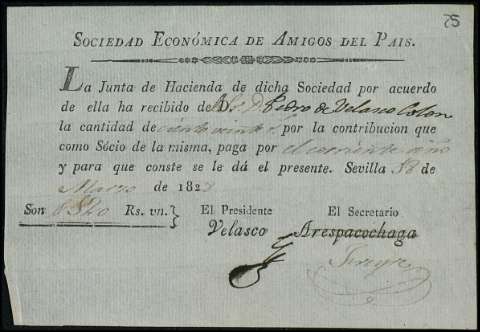 75
SOCIEDAD ECONÓMICA DE AMIGOS DEL PAIS.
La Junta de Hacienda de dicha Sociedad por acuerdo
de ella ha recibido de D. Pedro de Velasco Colon
la cantidad de ciento veinte r.s por la contribucion que
como Sócio de la misma, paga por el corriente año
y para que conste se le dá el presente. Sevilla 18 de
Marzo de 182
Son 120 Rs. vn.}
El Presidente El Secretario
Velasco Arespacochaga